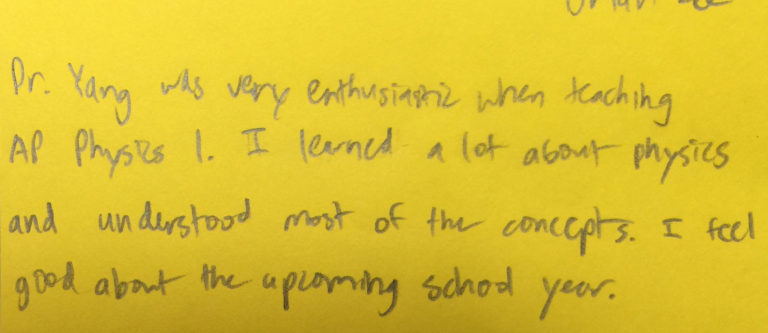 Dr. Yang was very enthusiastic when teaching
AP Physics 1. I learned a lot about physics
and understood most of the concepts. I feel
good about the upcoming school year.